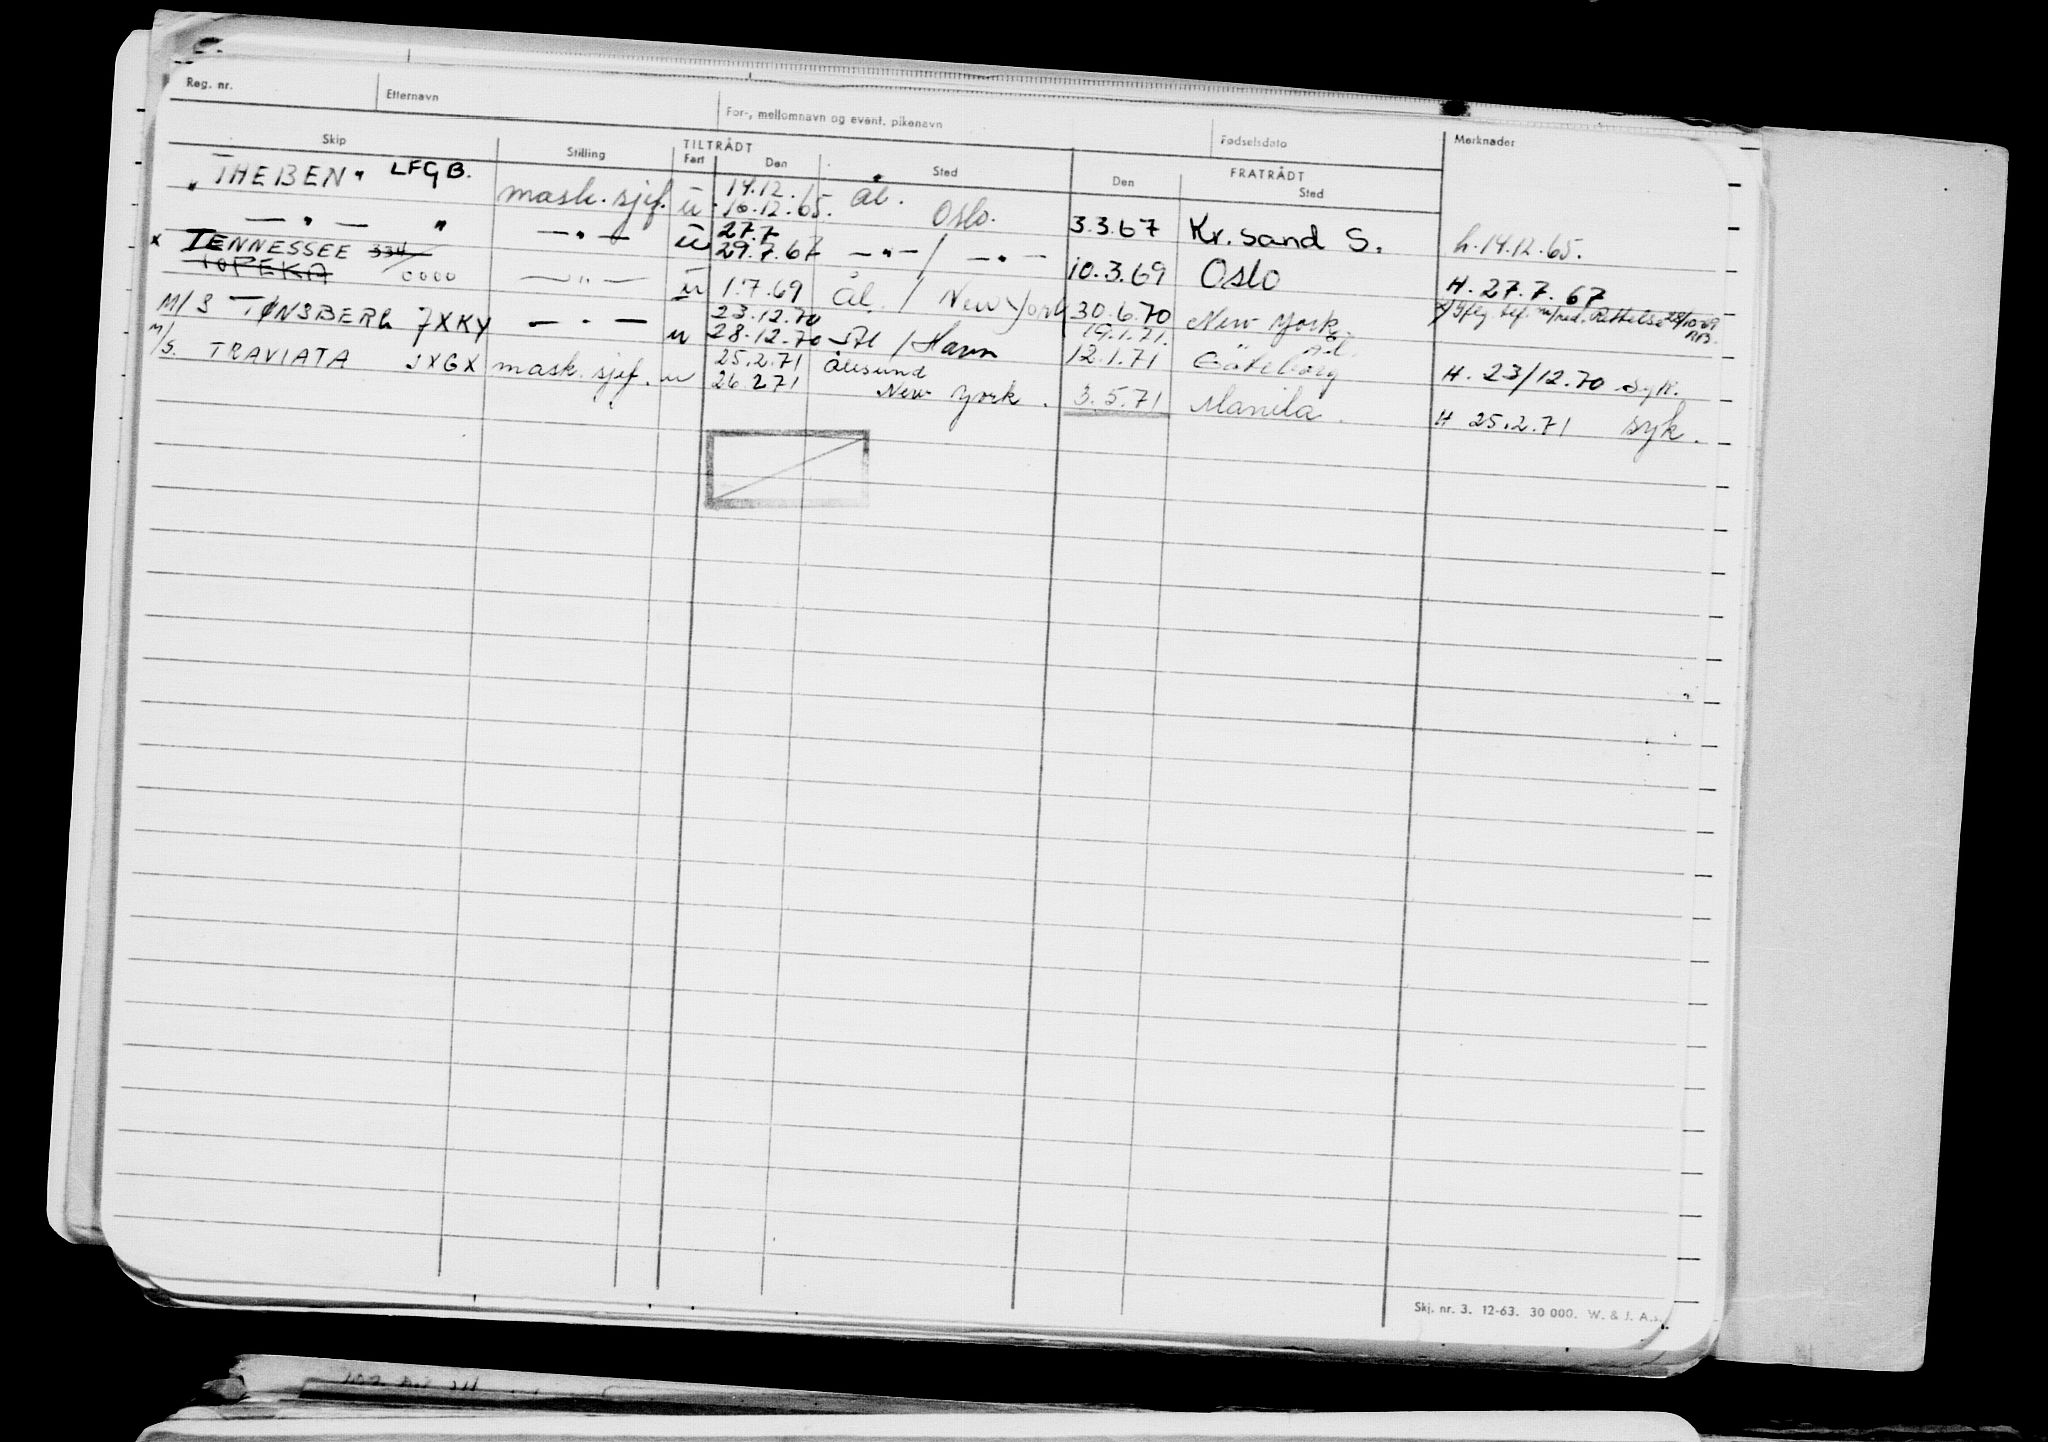 Reg. nr. Etternavn For-, mellomnavn og event. pikenavn Fødselsdato Merknader
Skip Stilling TILTRÅDT FRATRÅDT
Fart Den Sted Den Sted
"THEBEN" LFGB. mask. sjef. u 14.12. Ål.
16.12.65. Oslo. 3.3.67 Kr. sand S. h. 14.12.65.
— " — " — " — u 27.7
29.7.67 — " — / — " — 10.3.69 Oslo H. 27.7.67
x TENNESSEE 334
TOPEKA OOOO — " — u 1.7.69 Ål. / New York 30.6.70 New York. Rettelse 28/10-69
RB.
M/S TØNSBERG JXKY — " — u 23.12.70
28.12.70 Ål / Havn 19.1.71. Ål.
12.1.71 Göteborg H. 23/12.70 syk.
M/S. TRAVIATA JXGX mask. sjef. u 25.2.71 Ålesund
26.2.71 New York. 3.5.71 Manila. H 25.2.71 syk.
Skj. nr. 3. 12-63. 30 000. W. & J. A.s.